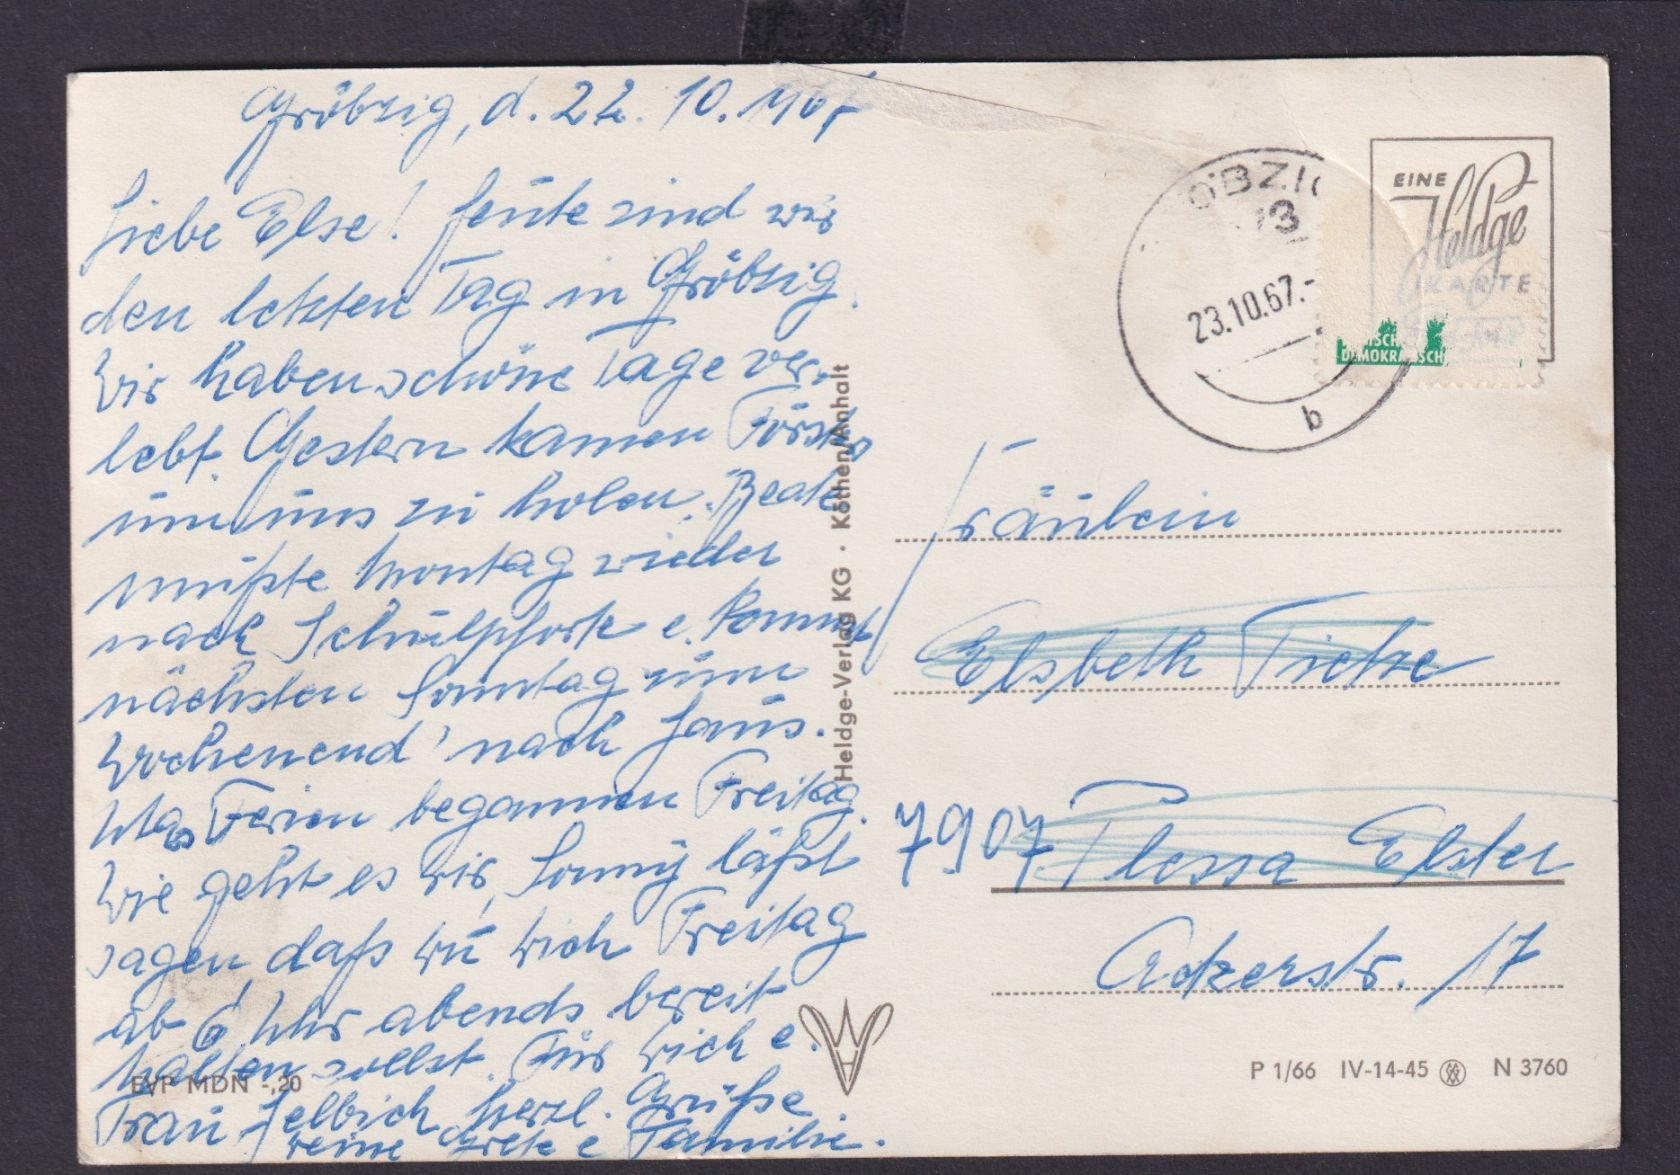 Gröbzig, d. 22. 10. 1967
Liebe Else! Heute sind wir
den letzten Tag in Gröbzig.
Wir haben schöne Tage ver-
lebt. Gestern kamen Försters
um uns zu holen. Beate
mußte Montag wieder
nach Schulpforte e. kommt
nächsten Sonntag zum
Wochenend' nach Haus.
Ferien begannen Freitag.
Wie geht es Dir, läßt
sagen, daß Du Dich Freitag
ab 6 Uhr abends bereit
halten sollst. Für Dich e.
Frau herzl. Grüße
Deine Grete e Familie.
EVP MDN -,20
Heldge-Verlag KG · Köthen/Anhalt
ÖBZI
23.10.67.-
b
EINE
Heldge
KARTE
DEMOKRATISCH
Fräulein
Elsbeth Tietze
7907 Plessa Elster
Ackerstr. 17
P 1/66 IV-14-45 N 3760